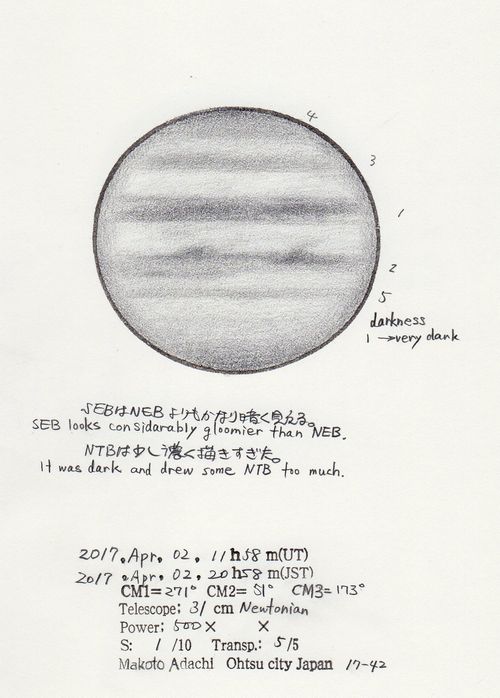 4
3
1
2
5
darkness
1 →very dark
SEBはNEBよりもかなり暗く見える。
SEB looks considarably gloomier than NEB.
NTBは少し濃く描きすぎた。
It was dark and drew some NTB too much.
2017. Apr. 02. 11h58m(UT)
2017. Apr. 02. 20h58m(JST)
CM1=271° CM2= 51° CM3=173°
Telescope; 31 cm Newtonian
Power; 500× ×
S: 1 /10 Transp.: 5/5
Makoto Adachi Ohtsu city Japan 17-42